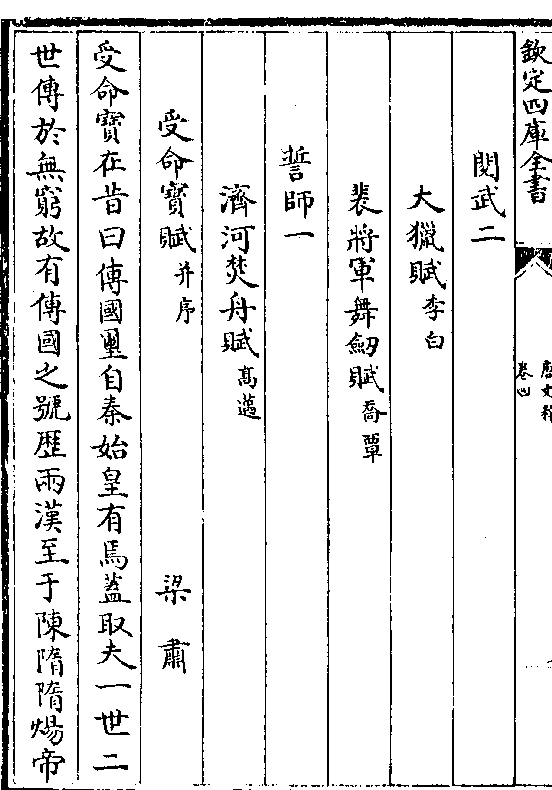 欽定四庫全書
卷四
閱武二
大獵賦李白
裴將軍舞劒賦喬覃
誓師一
濟河焚舟賦髙邁
受命寶賦并序 梁肅
受命寶在昔曰傳國璽自秦始皇有焉蓋取夫一世二
世傳於無窮故有傳國之號歴兩漢至于陳隋隋煬帝